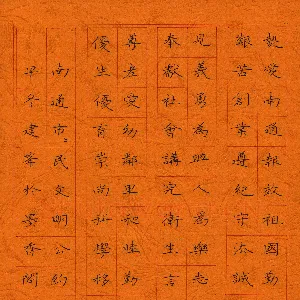 毅愛南道報效祖國勤
艱苦創業遵紀守法誠
見義勇為助人為樂志
奉獻社會講究衛生言
尊老愛幼鄰里和睦勤
優生優育崇尚科學移
南道市民文明公約
建峯於墨香閣